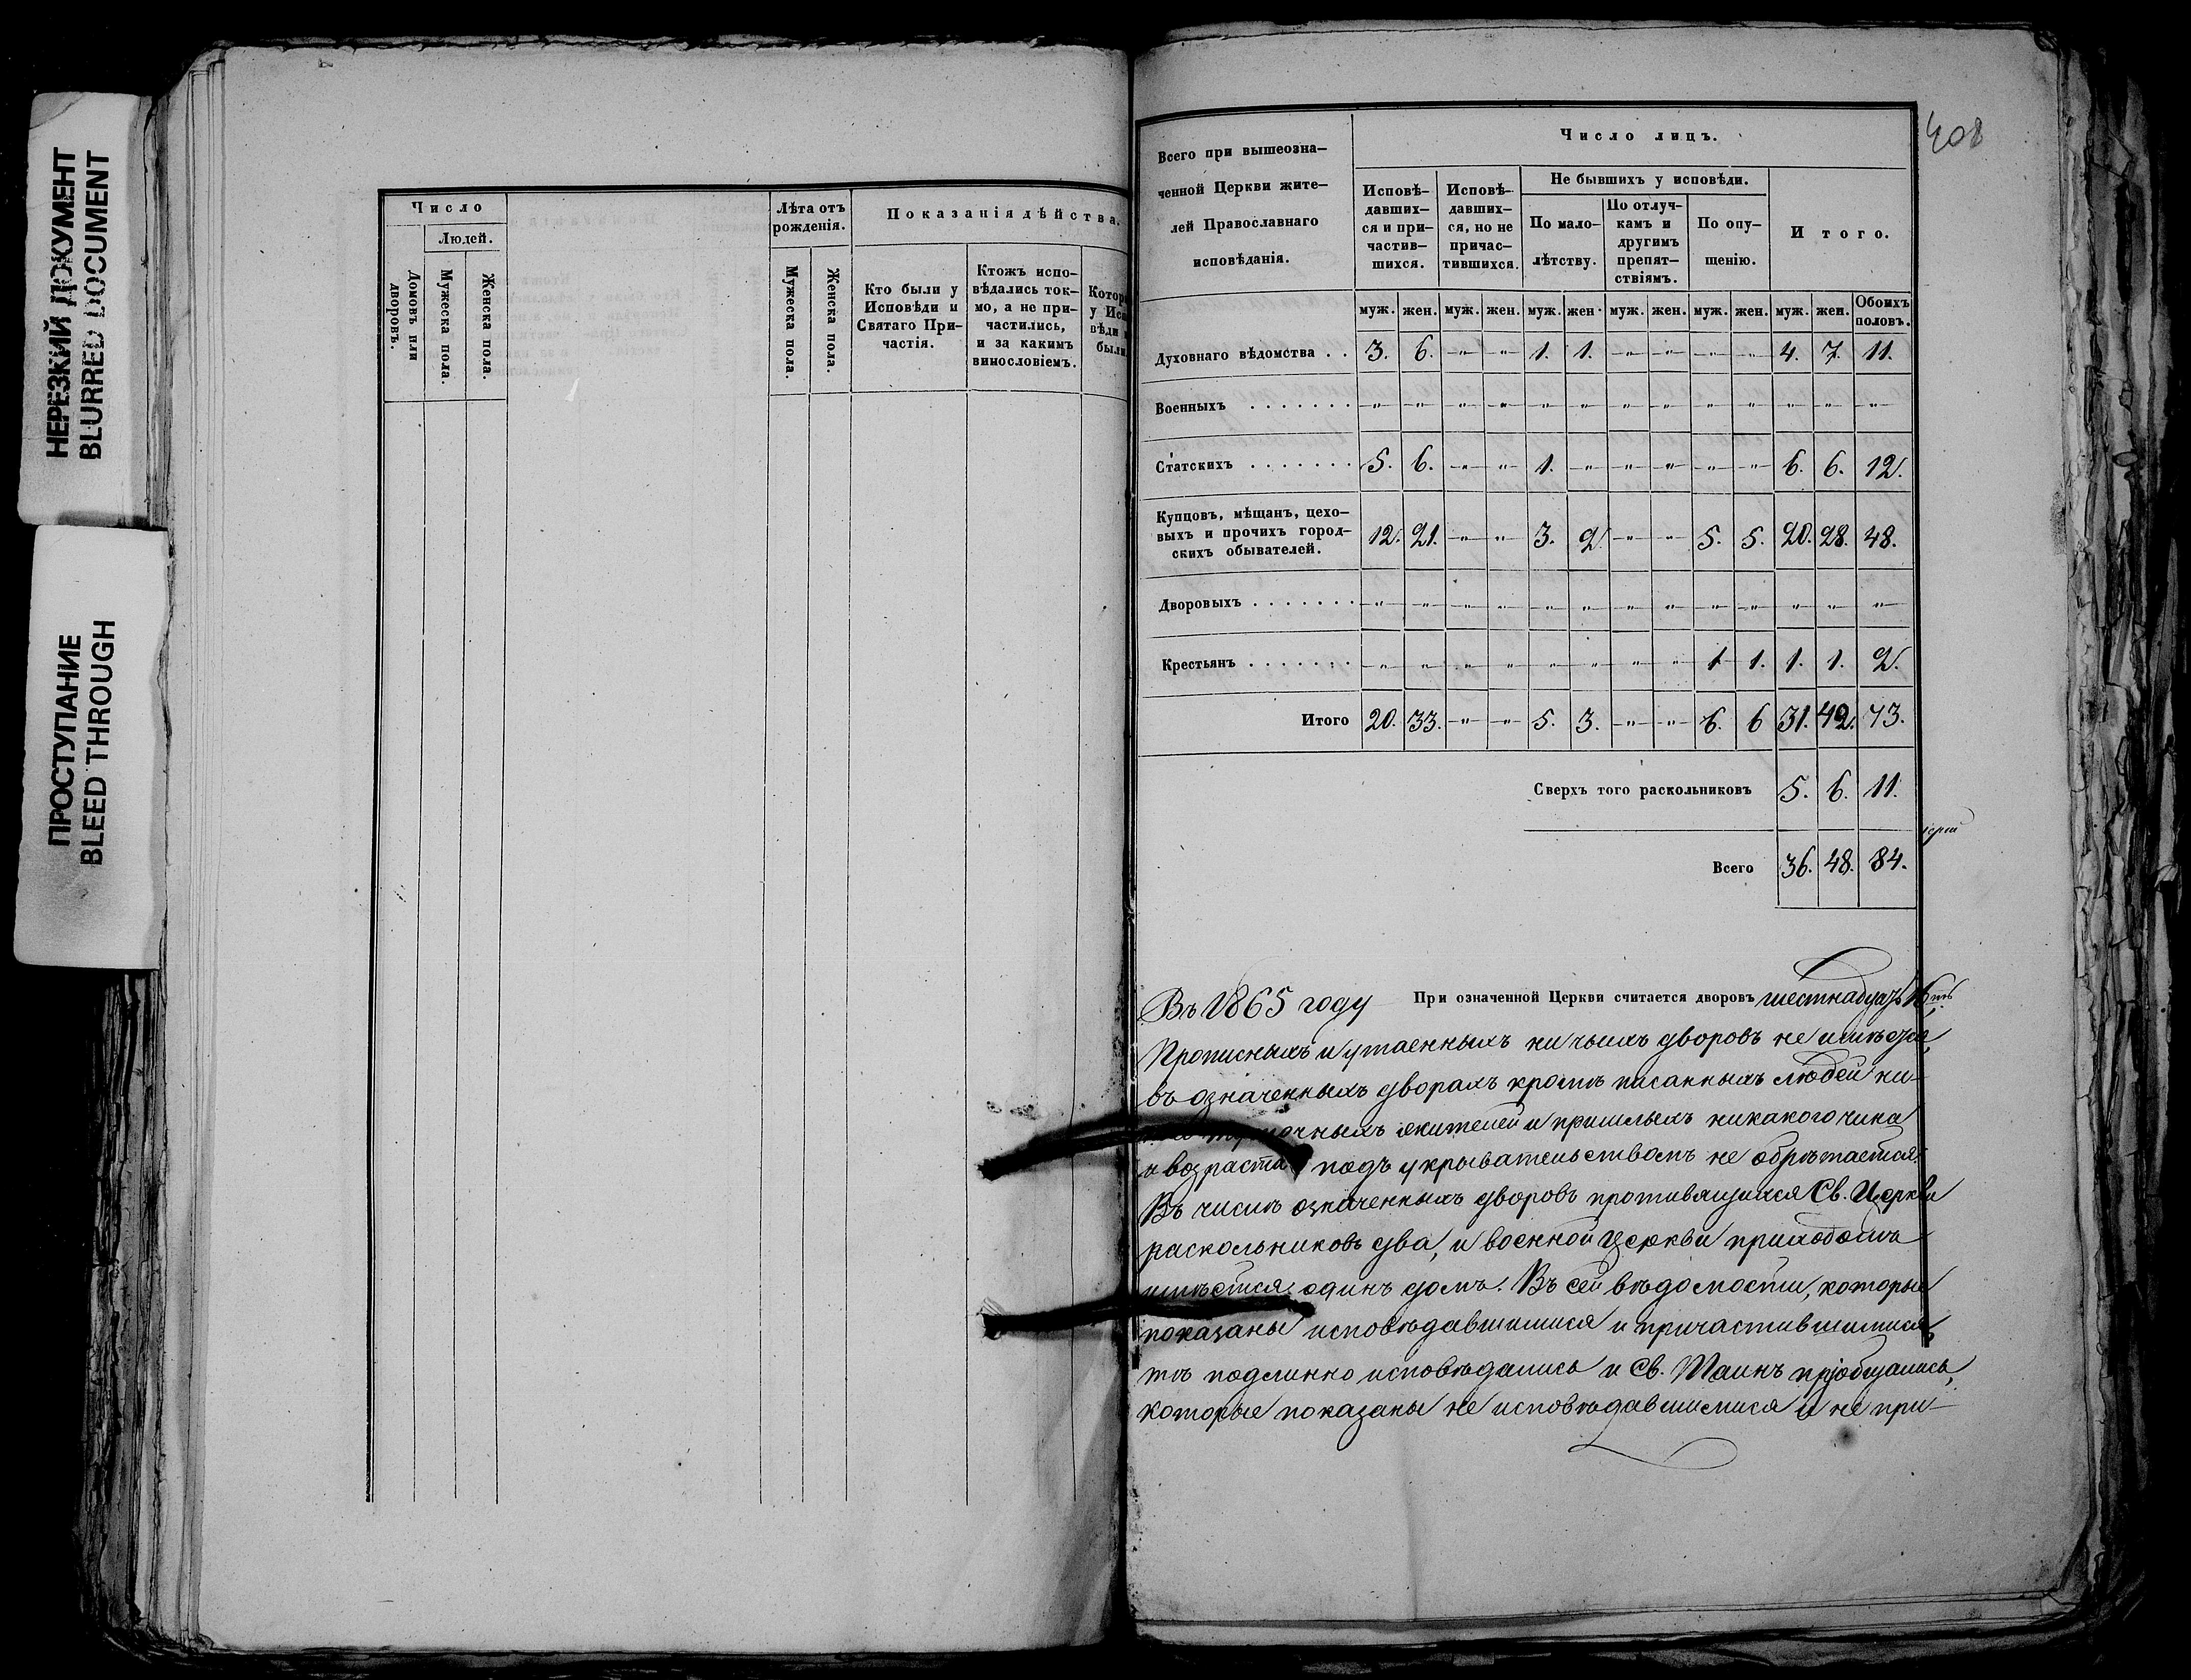 НЕРЕЗКИЙ ДОКУМЕНТ
BLURRED DOCUMENT
ПРОСТУПАНИЕ
BLEED THROUGH
Число
Людей.
Домовъ или дворовъ.
Мужеска пола.
Женска пола.
Лѣта отъ рожденія.
Мужеска пола.
Женска пола.
Показанія дѣйства.
Кто были у Исповѣди и Святаго Причастія.
Ктожъ исповѣдались токмо, а не причастились, и за какимъ винословіемъ.
408
Всего при вышеозначенной Церкви жителей Православнаго исповѣданія.
Число лицъ.
Исповѣдавшихся и причастившихся.
Исповѣдавшихся, но не причастившихся.
Не бывшихъ у исповѣди.
По малолѣтству.
По отлучкамъ и другимъ препятствіямъ.
По опущенію.
Итого.
муж. жен. муж. жен. муж. жен. муж. жен. муж. жен. муж. жен. Обоихъ половъ.
Духовнаго вѣдомства . . 3. 6. " " 1. 1. " " " " 4. 7. 11.
Военныхъ . . . . . . . " " " " " " " " " " " " "
Статскихъ . . . . . . . 5. 6. " " 1. " " " " " 6. 6. 12.
Купцовъ, мѣщанъ, цехо-
выхъ и прочихъ город-
скихъ обывателей. 12. 21. " " 3. 2. " " 5. 5. 20. 28. 48.
Дворовыхъ . . . . . . . " " " " " " " " " " " " "
Крестьянъ . . . . . . . " " " " " " " " 1 1. 1. 1. 2.
Итого 20. 33. " " 5. 3. " " 6. 6 31. 42. 73.
Сверхъ того раскольниковъ 5. 6. 11.
Всего 36. 48. 84.
Въ 1865 году При означенной Церкви считается дворовъ шестнадцать 16ть
Прописныхъ и утаенныхъ ничьихъ дворовъ не имѣется,
въ означенныхъ дворахъ кромѣ писанныхъ людей ни-
жителей и пришлыхъ никакого чина
и возраста подъ укрывательствомъ не обрѣтается.
Въ числѣ означенныхъ дворовъ противящихся Св. Церкви
раскольниковъ два, и военной церкви приходомъ
имѣется одинъ домъ. Въ сей вѣдомости, которые
показаны исповѣдавшимися и причастившимися,
тѣ подлинно исповѣдались и Св. Таинъ пріобщались,
которые показаны не исповѣдавшимися и не при-